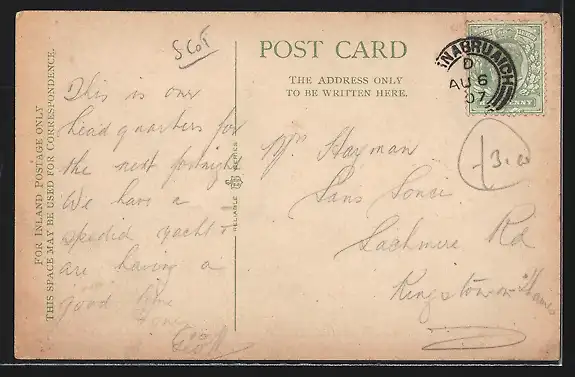 SCoT
POST CARD
THE ADDRESS ONLY
TO BE WRITTEN HERE.
FOR INLAND POSTAGE ONLY
THIS SPACE MAY BE USED FOR CORRESPONDENCE.
RELIABLE SERIES
NABRUAICH
D
AU 6
07
PENNY
This is our
headquarters for
the next fortnight
We have a
spedid yacht &
are having a
good time
Mrs Hayman
Sans Souci
Lachmere Rd
Kingston on Thames